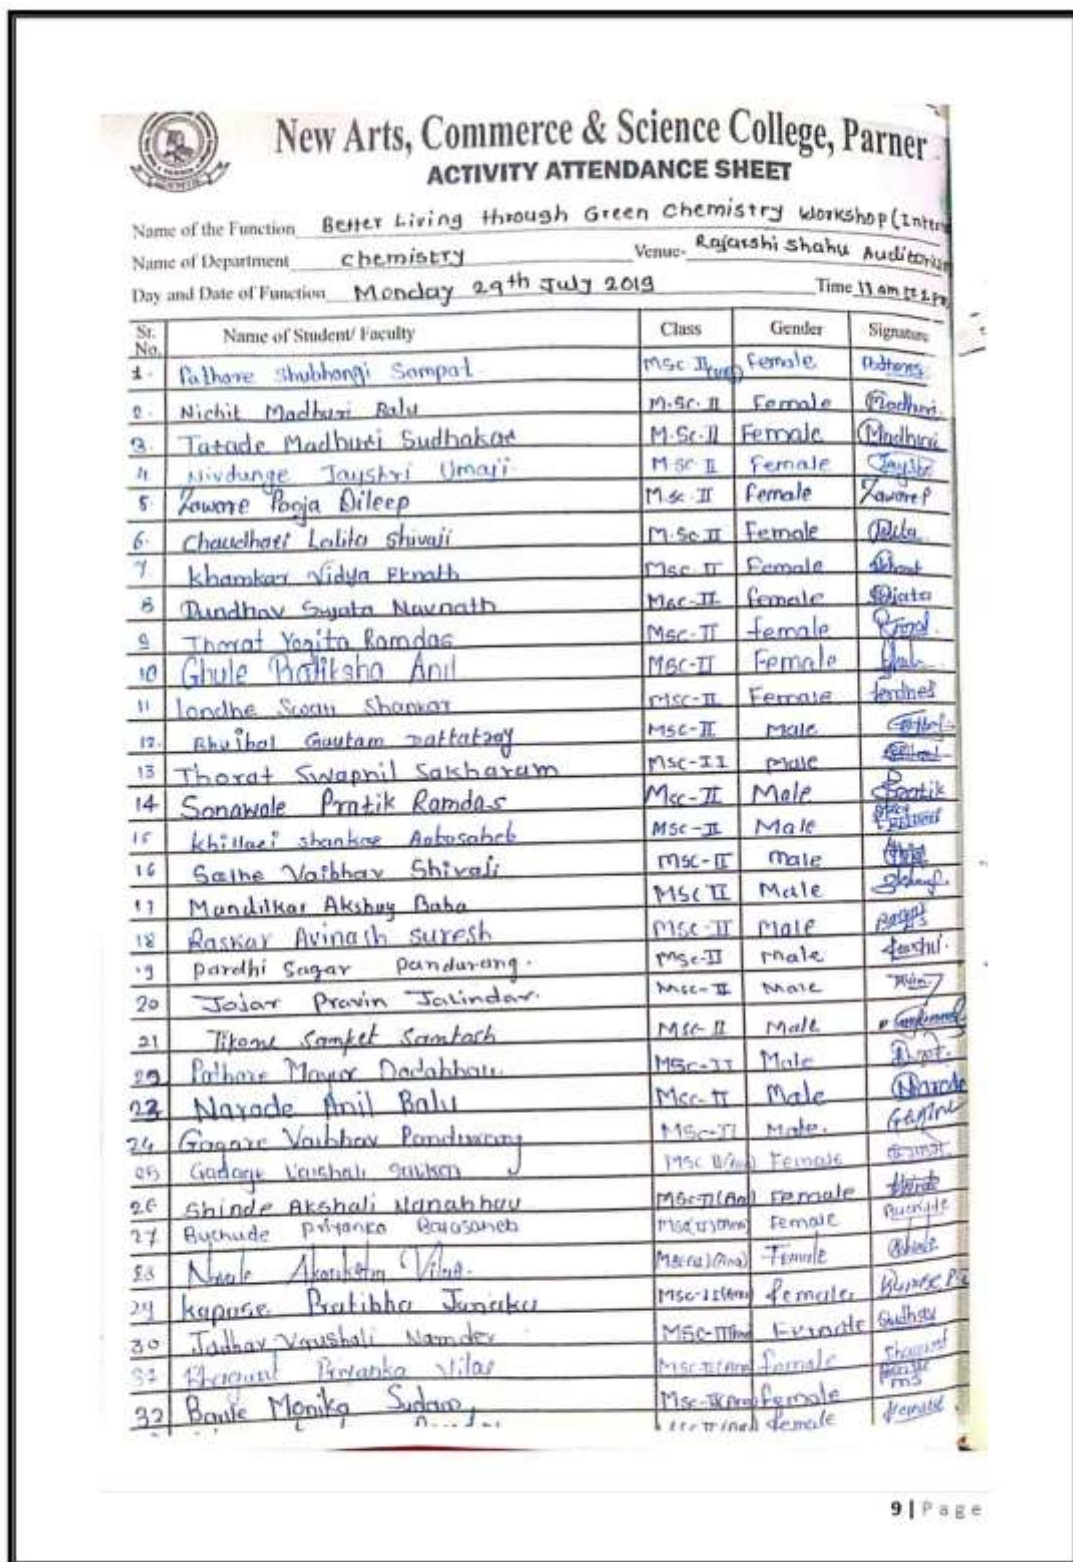 New Arts, Commerce & Science College, Parner
ACTIVITY ATTENDANCE SHEET
Name of the Function Better Living through Green Chemistry Workshop (Intern
Name of Department Chemistry Venue- Rajarshi Shahu Auditorium
Day and Date of Function Monday 29th July 2019 Time 11 am to 1 pm
Sr. No. Name of Student/ Faculty Class Gender Signature
1. Pathare Shubhangi Sampat MSC II Female
2. Nichit Madhuri Balu M.Sc. II Female Madhuri
3. Tatade Madhuri Sudhakar M.Sc. II Female Madhuri
4 Nivdunge Jayshri Umaji M.SC II Female
5. Zaware Pooja Dileep M.Sc. II Female Zaware P
6. Chaudhari Lalita Shivaji M.Sc. II Female
7 Khamkar Vidya Eknath Msc. II Female
8 Dundhav Sujata Navnath Msc-II female
9 Thorat Yogita Ramdas Msc-II female
10 Ghule Pratiksha Anil MSC-II Female
11 londhe Shankar MSC-II Female
12. Bhujbal Gautam Dattatray MSC-II Male
13 Thorat Swapnil Sakharam MSC-II Male
14 Sonawale Pratik Ramdas Msc-II Male Pratik
15 khillari shankar Aabasaheb MSC-II Male
16 Sathe Vaibhav Shivaji MSC-II male
17 Mandilkar Akshay Baba MSC II Male
18 Raskar Avinash Suresh MSC-II Male
19 Pardhi Sagar Pandurang. MSC-II male
20 Jojar Pravin Jalindar. MSC-II Male
21 Tikone Sanket Santosh MSC-II Male
22 Pathare Mayur Dadabhau MSC-II Male
23 Narode Anil Balu Msc-II Male Narode
24 Gagare Vaibhav Pandurang MSC-II Male. Gagare
25 Gadage Vaishali MSC II Female
26 Shinde Akshali Nanabhau MSC-II(An) Female
27 Bychude Priyanka Balasaheb Female
28 Female
29 Kapase Pratibha Janaku MSC-II female
30 Jadhav Vaushali Namdev MSC-II Female
31 Bhagunt Priyanka Vilas MSC-II female
32 Monika Sudam MSC-II female
female
9 | Page